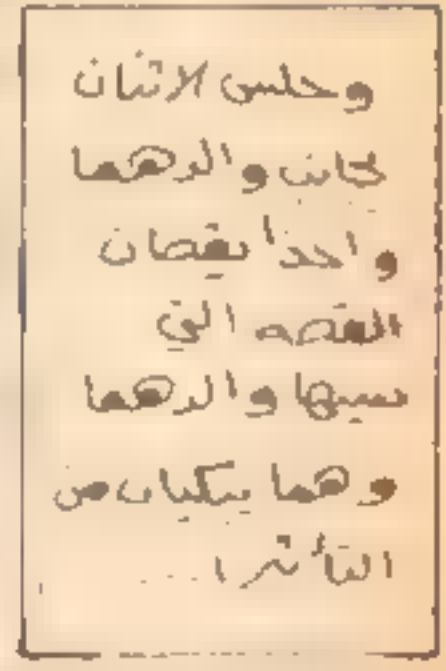 وجلس الاثنان
بجانب والدهما
واخدا يقصان
القصه التي
نسيها والدهما
وهما يبكيان من
التأثر ا...